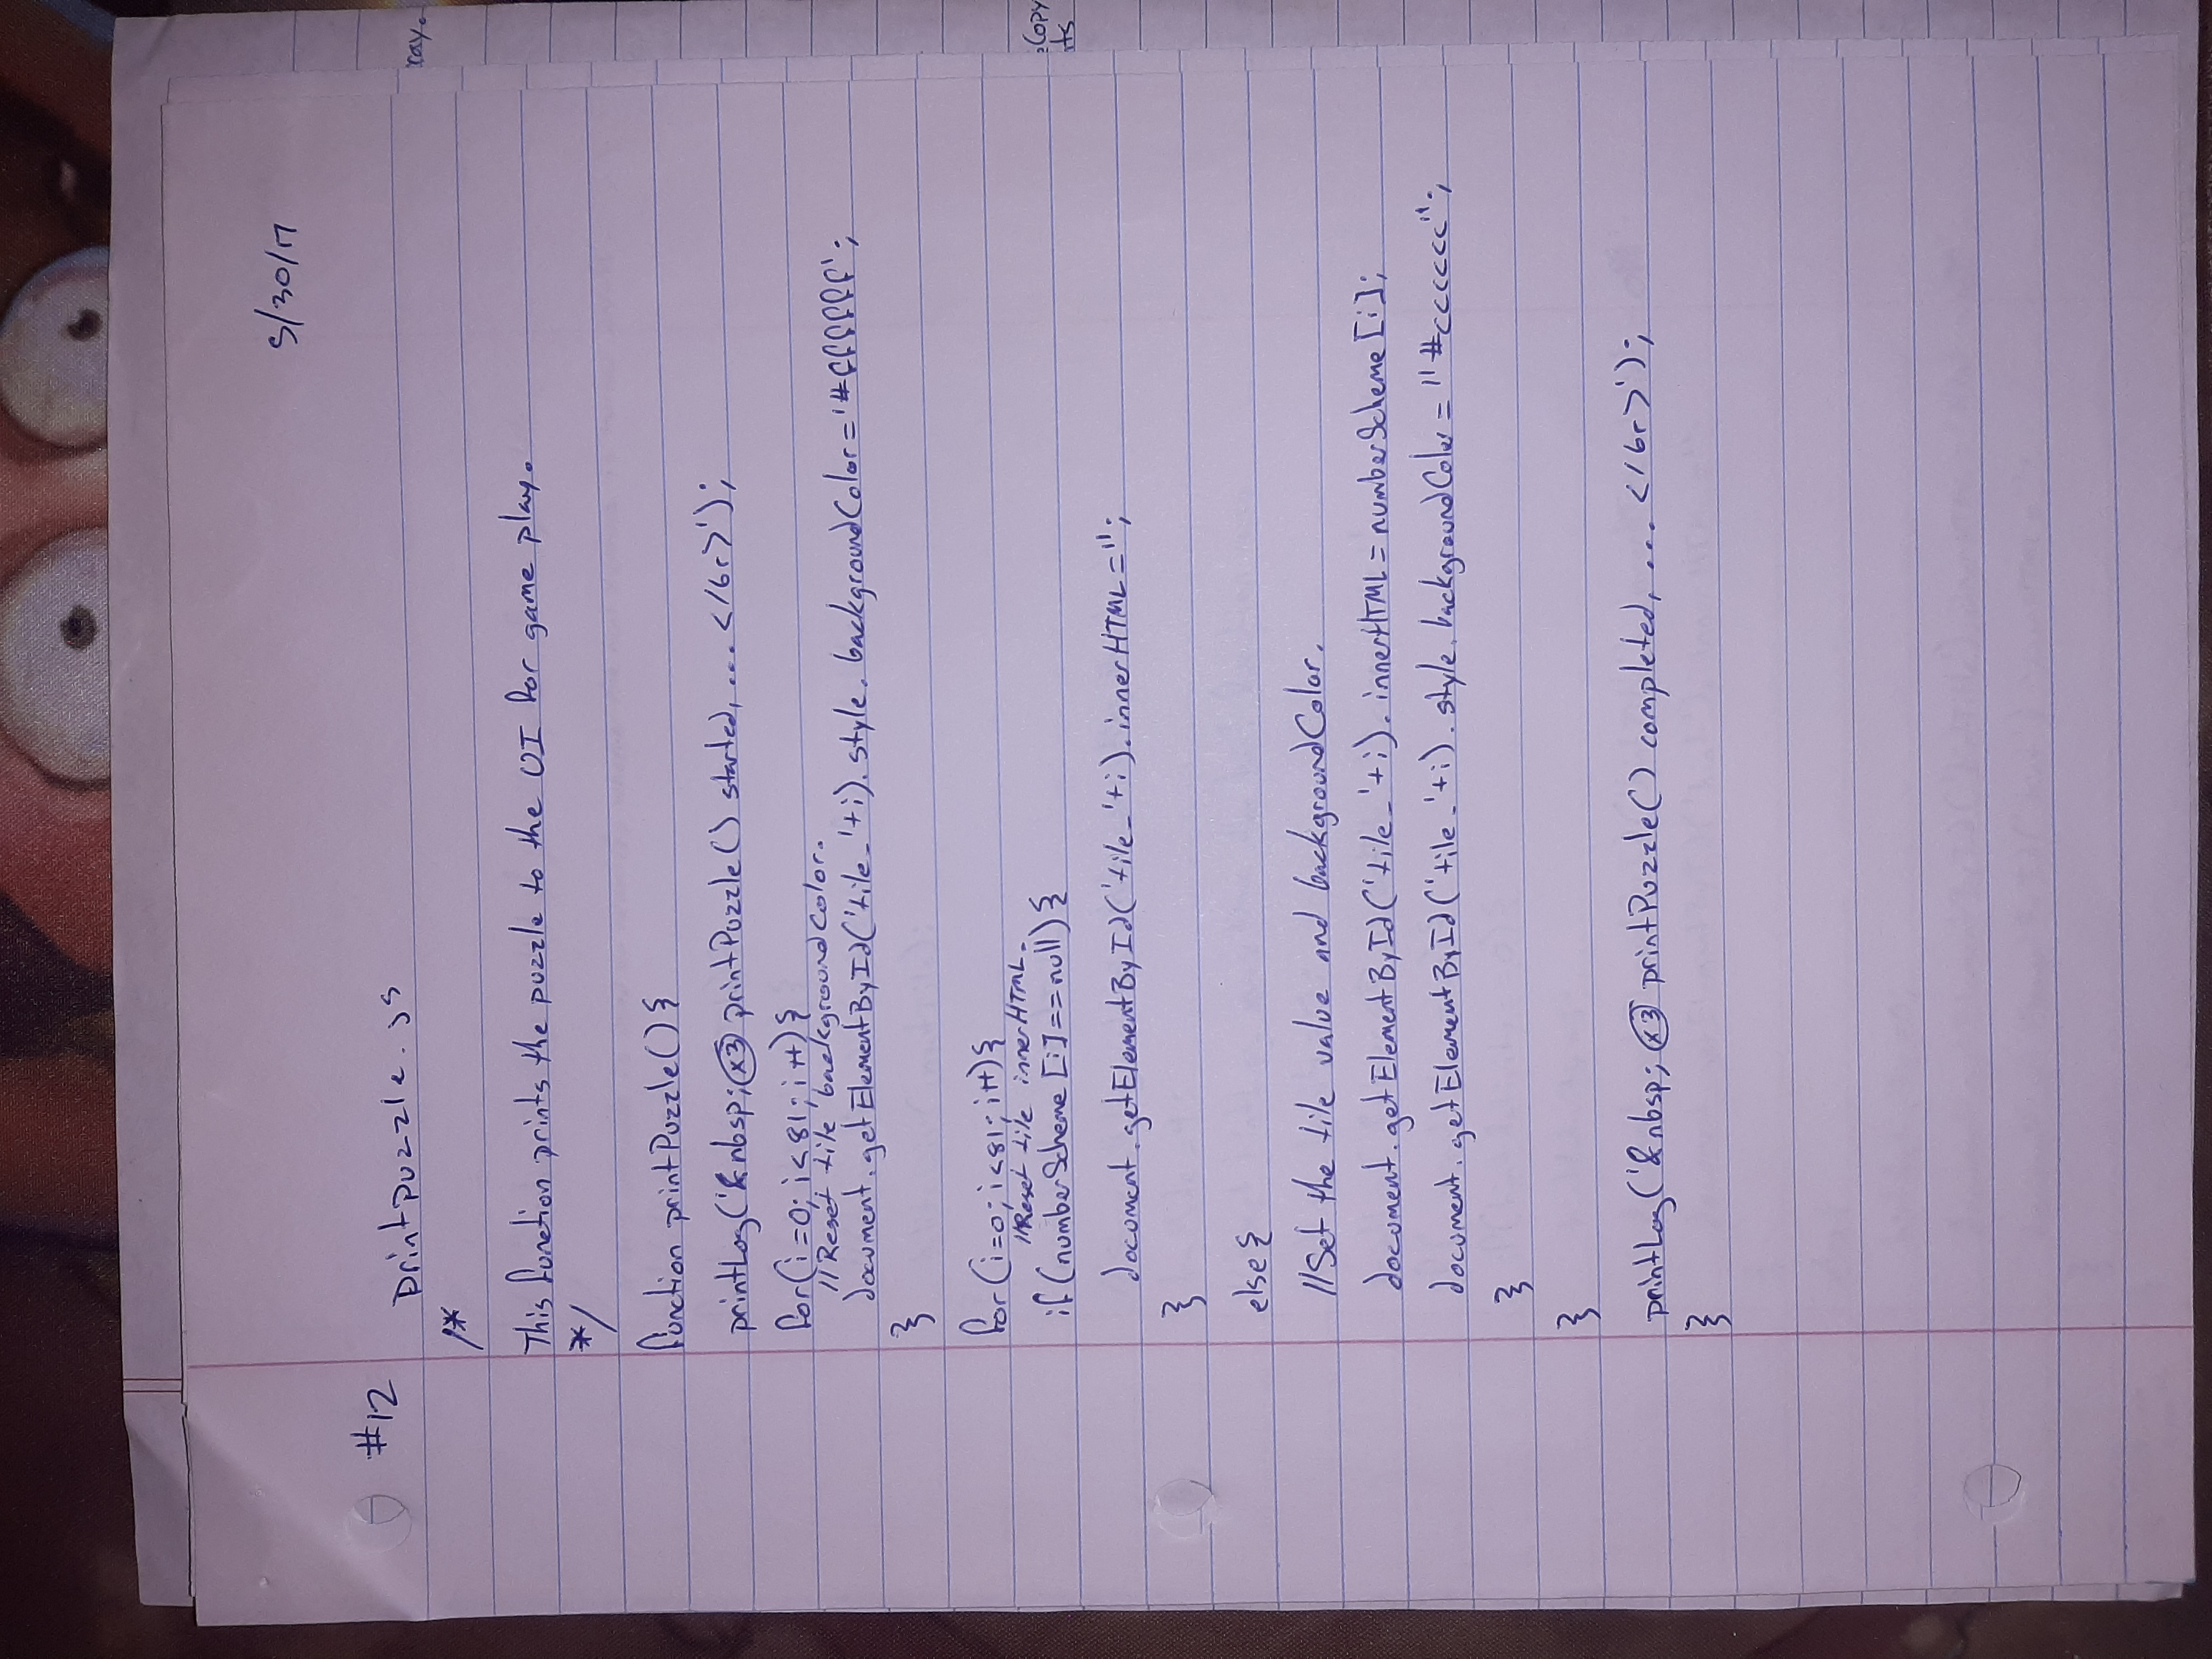 5/30/17
#12
printpuzzle.js
/*
This function prints the puzzle to the UI for game play.
*/
function printPuzzle(){
printLog('&nbsp;x3 printPuzzle() started, ... </br>');
for(i=0; i<81; i++){
//Reset tile backgroundColor.
document.getElementById('tile_'+i).style.backgroundColor='#ffffff';
}
for(i=0; i<81; i++){
//Reset tile innerHTML.
if(numberScheme[i]==null){
document.getElementById('tile_'+i).innerHTML='';
}
else{
//Set the tile value and backgroundColor.
document.getElementById('tile_'+i).innerHTML=numberScheme[i];
document.getElementById('tile_'+i).style.backgroundColor="#cccccc";
}
}
printLog('&nbsp; x3 printPuzzle() completed, ... </br>');
}
ray.
Copy